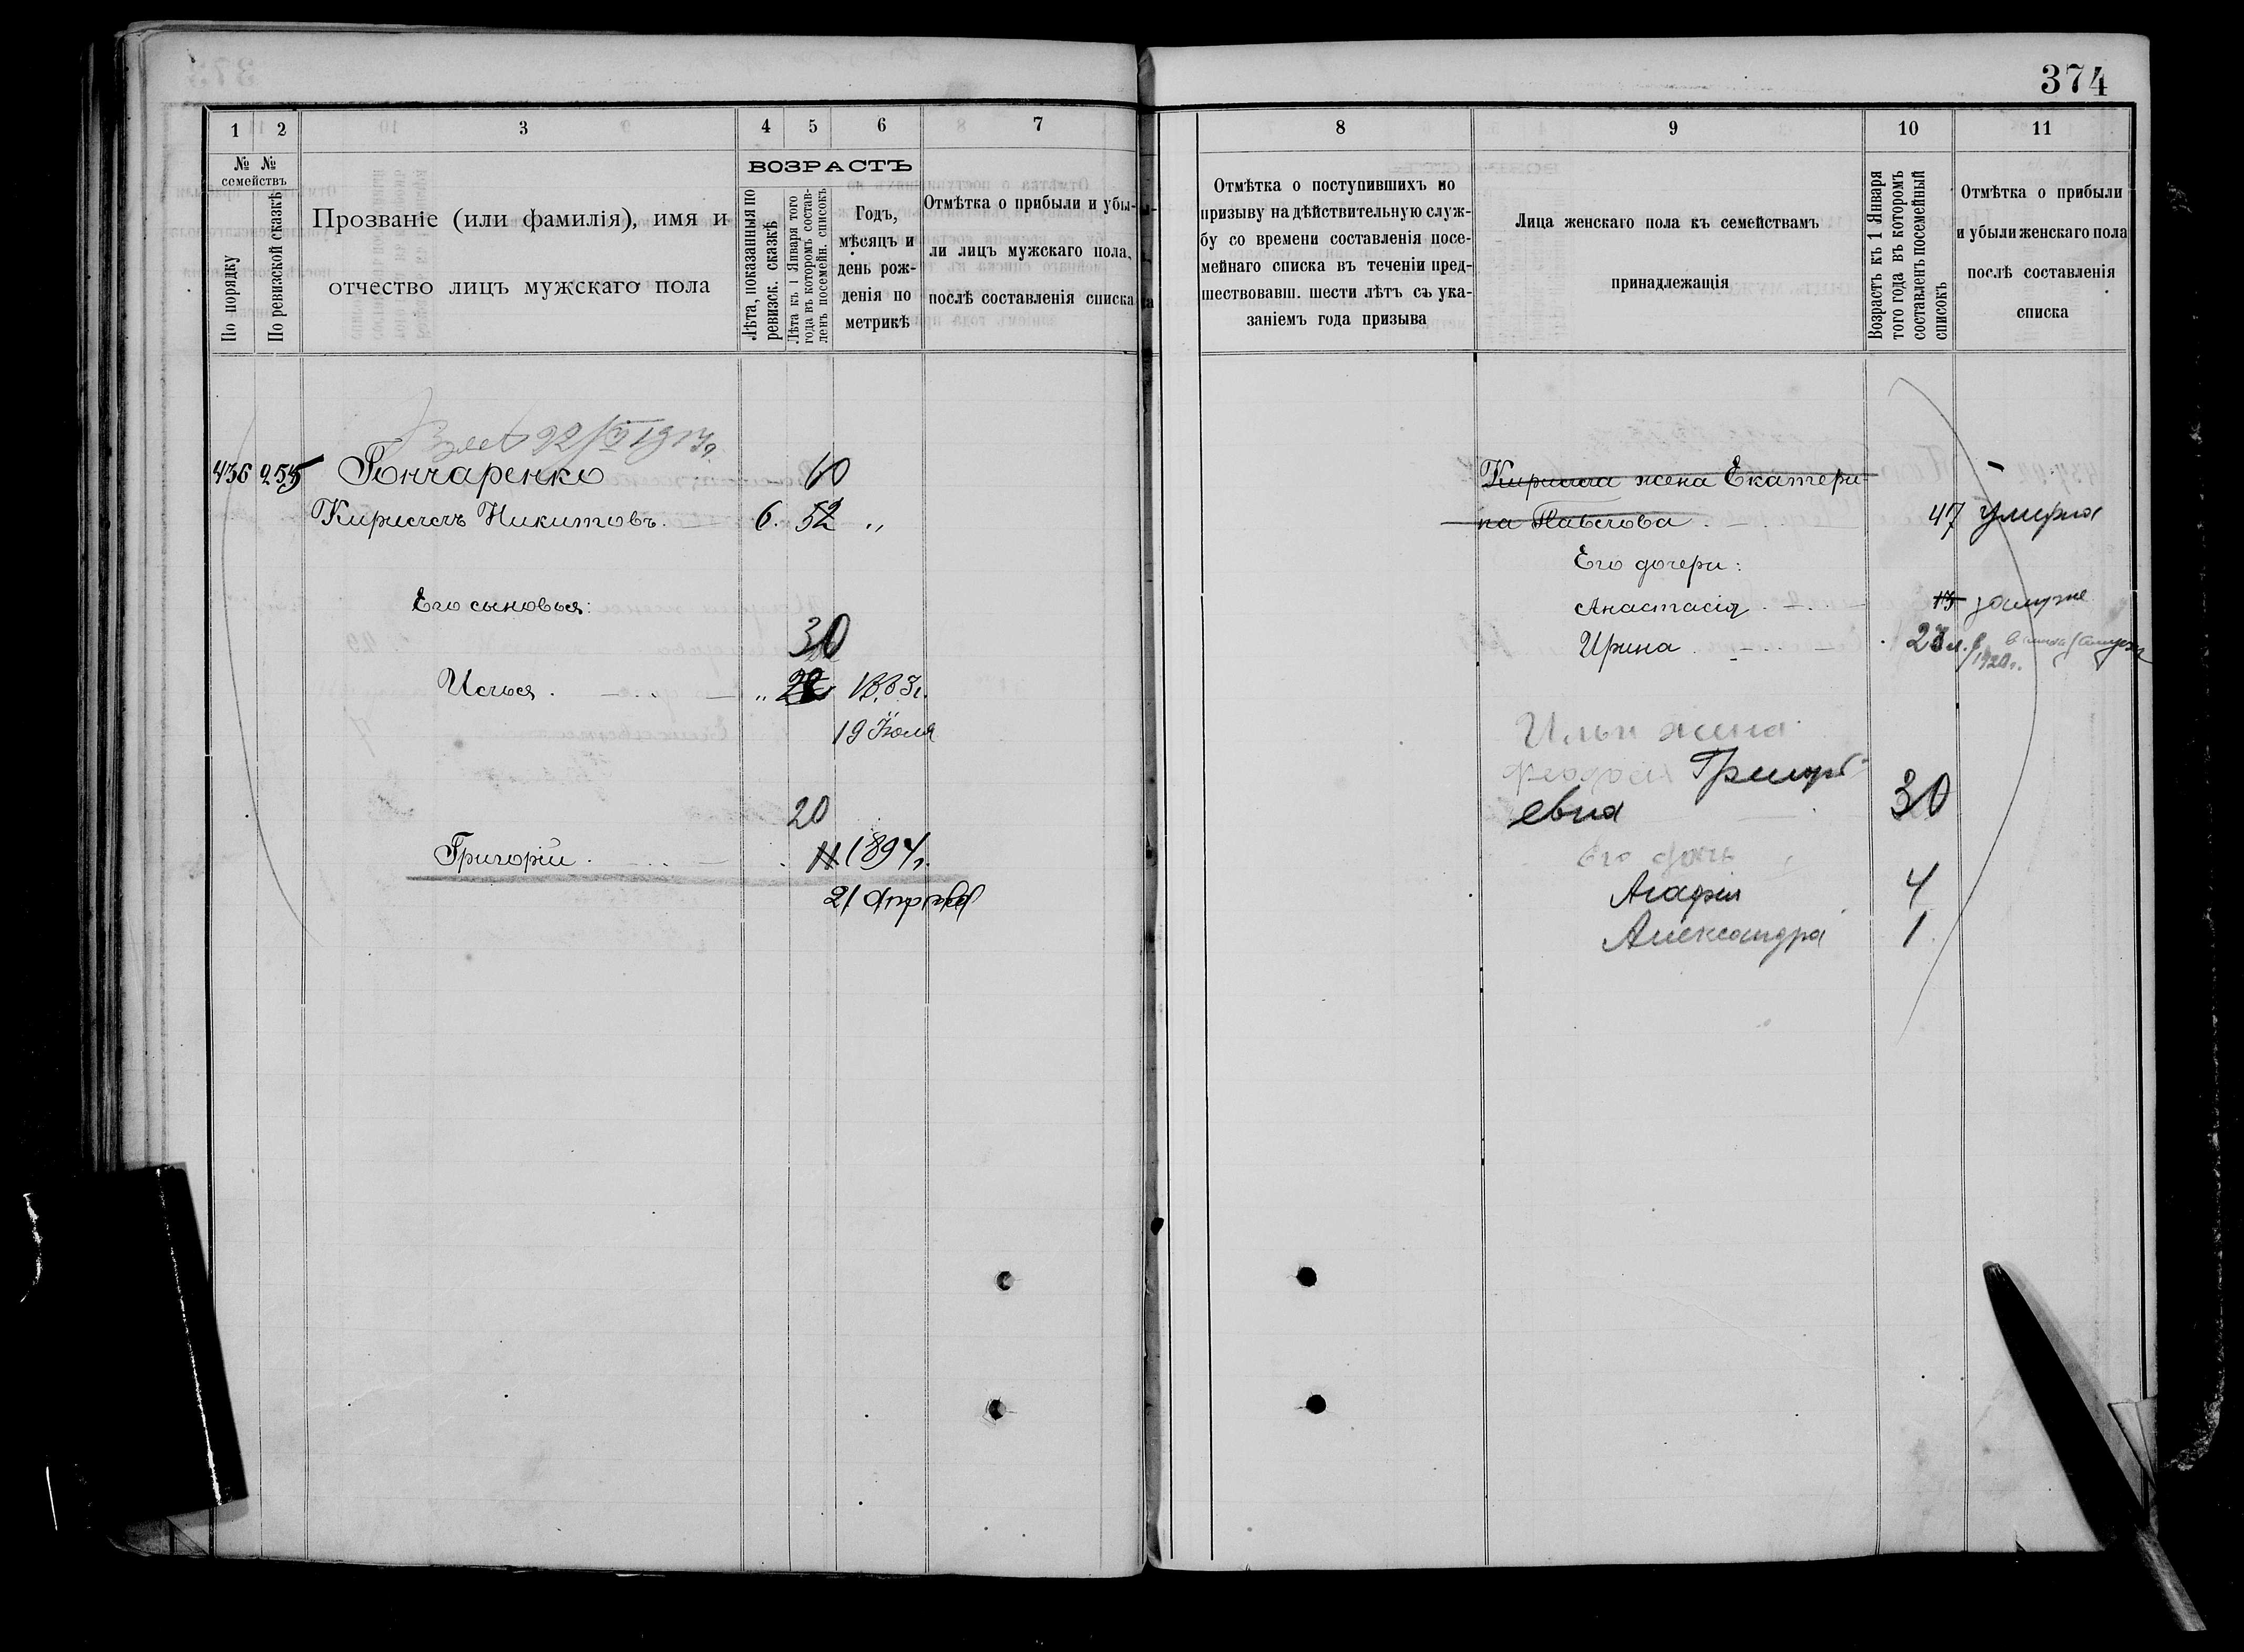 374
1 2 3 4 5 6 7
№ № семействъ
По порядку
По ревизской сказкѣ
Прозваніе (или фамилія), имя и
отчество лицъ мужскаго пола
ВОЗРАСТЪ
Лѣта, показанныя по
ревизск. сказкѣ
Лѣта къ 1 Января того
года въ которомъ состав-
ленъ посемейн. списокъ
Годъ,
мѣсяцъ и
день рож-
денія по
метрикѣ
Отмѣтка о прибыли и убы-
ли лицъ мужскаго пола,
послѣ составленія списка
436 255 Гончаренко 60
Кириллъ Никитовъ. 6. 52 "
Его сыновья:
30
Илья. " 1883г.
19 Іюля
20
Григорій. 11 1894г.
21 Апрѣля
8 9 10 11
Отмѣтка о поступившихъ по
призыву на дѣйствительную служ-
бу со времени составленія посе-
мейнаго списка въ теченіи пред-
шествовавш. шести лѣтъ съ ука-
заніемъ года призыва
Лица женскаго пола къ семействамъ
принадлежащія
Возрастъ къ 1 Января
того года въ которомъ
составленъ посемейный
списокъ
Отмѣтка о прибыли
и убыли женскаго пола
послѣ составленія
списка
Кирилла жена Екатери-
на Павлова. 47 умерла
Его дочери:
Анастасія. 15 замуже
Ирина 23 л.
1920г.
Ильи жена
Феодосія Григорь-
евна 30
Его дочь
Агафия 4
Александра 1